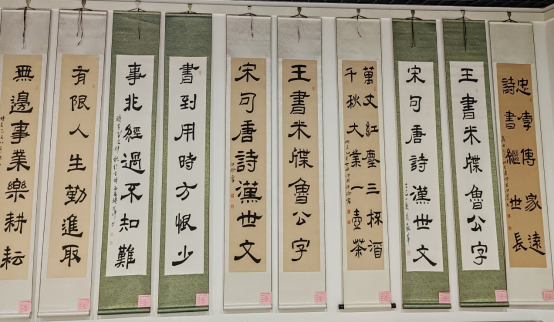 忠孝傳家遠
詩書繼世長
王書米牒魯公字
宋句唐詩漢世文
萬丈紅塵三杯酒
千秋大業一壺茶
王書米牒魯公字
宋句唐詩漢世文
書到用時方恨少
事非經過不知難
有限人生勤進取
無邊事業樂耕耘